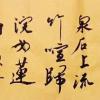 泉石上流
竹喧歸
浣女蓮